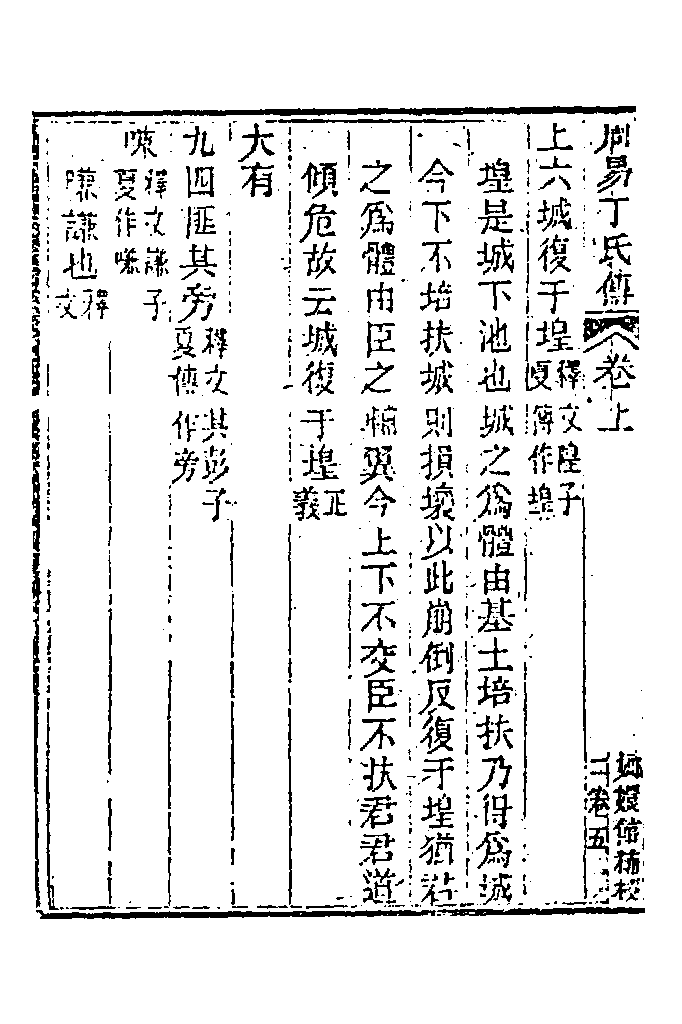 周易丁氏傳 卷上 二卷五 嫏嬛館補校
上六城復于堭釋文隍子夏傳作堭
堭是城下池也城之爲體由基土培扶乃得爲城
今下不培扶城則損壞以此崩倒反復于堭猶君
之爲體由臣之輔翼今上下不交臣不扶君君道
傾危故云城復于堭正義
大有
九四匪其旁釋文其彭子夏傳作旁
嗛釋文謙子夏作嗛
嗛謙也釋文